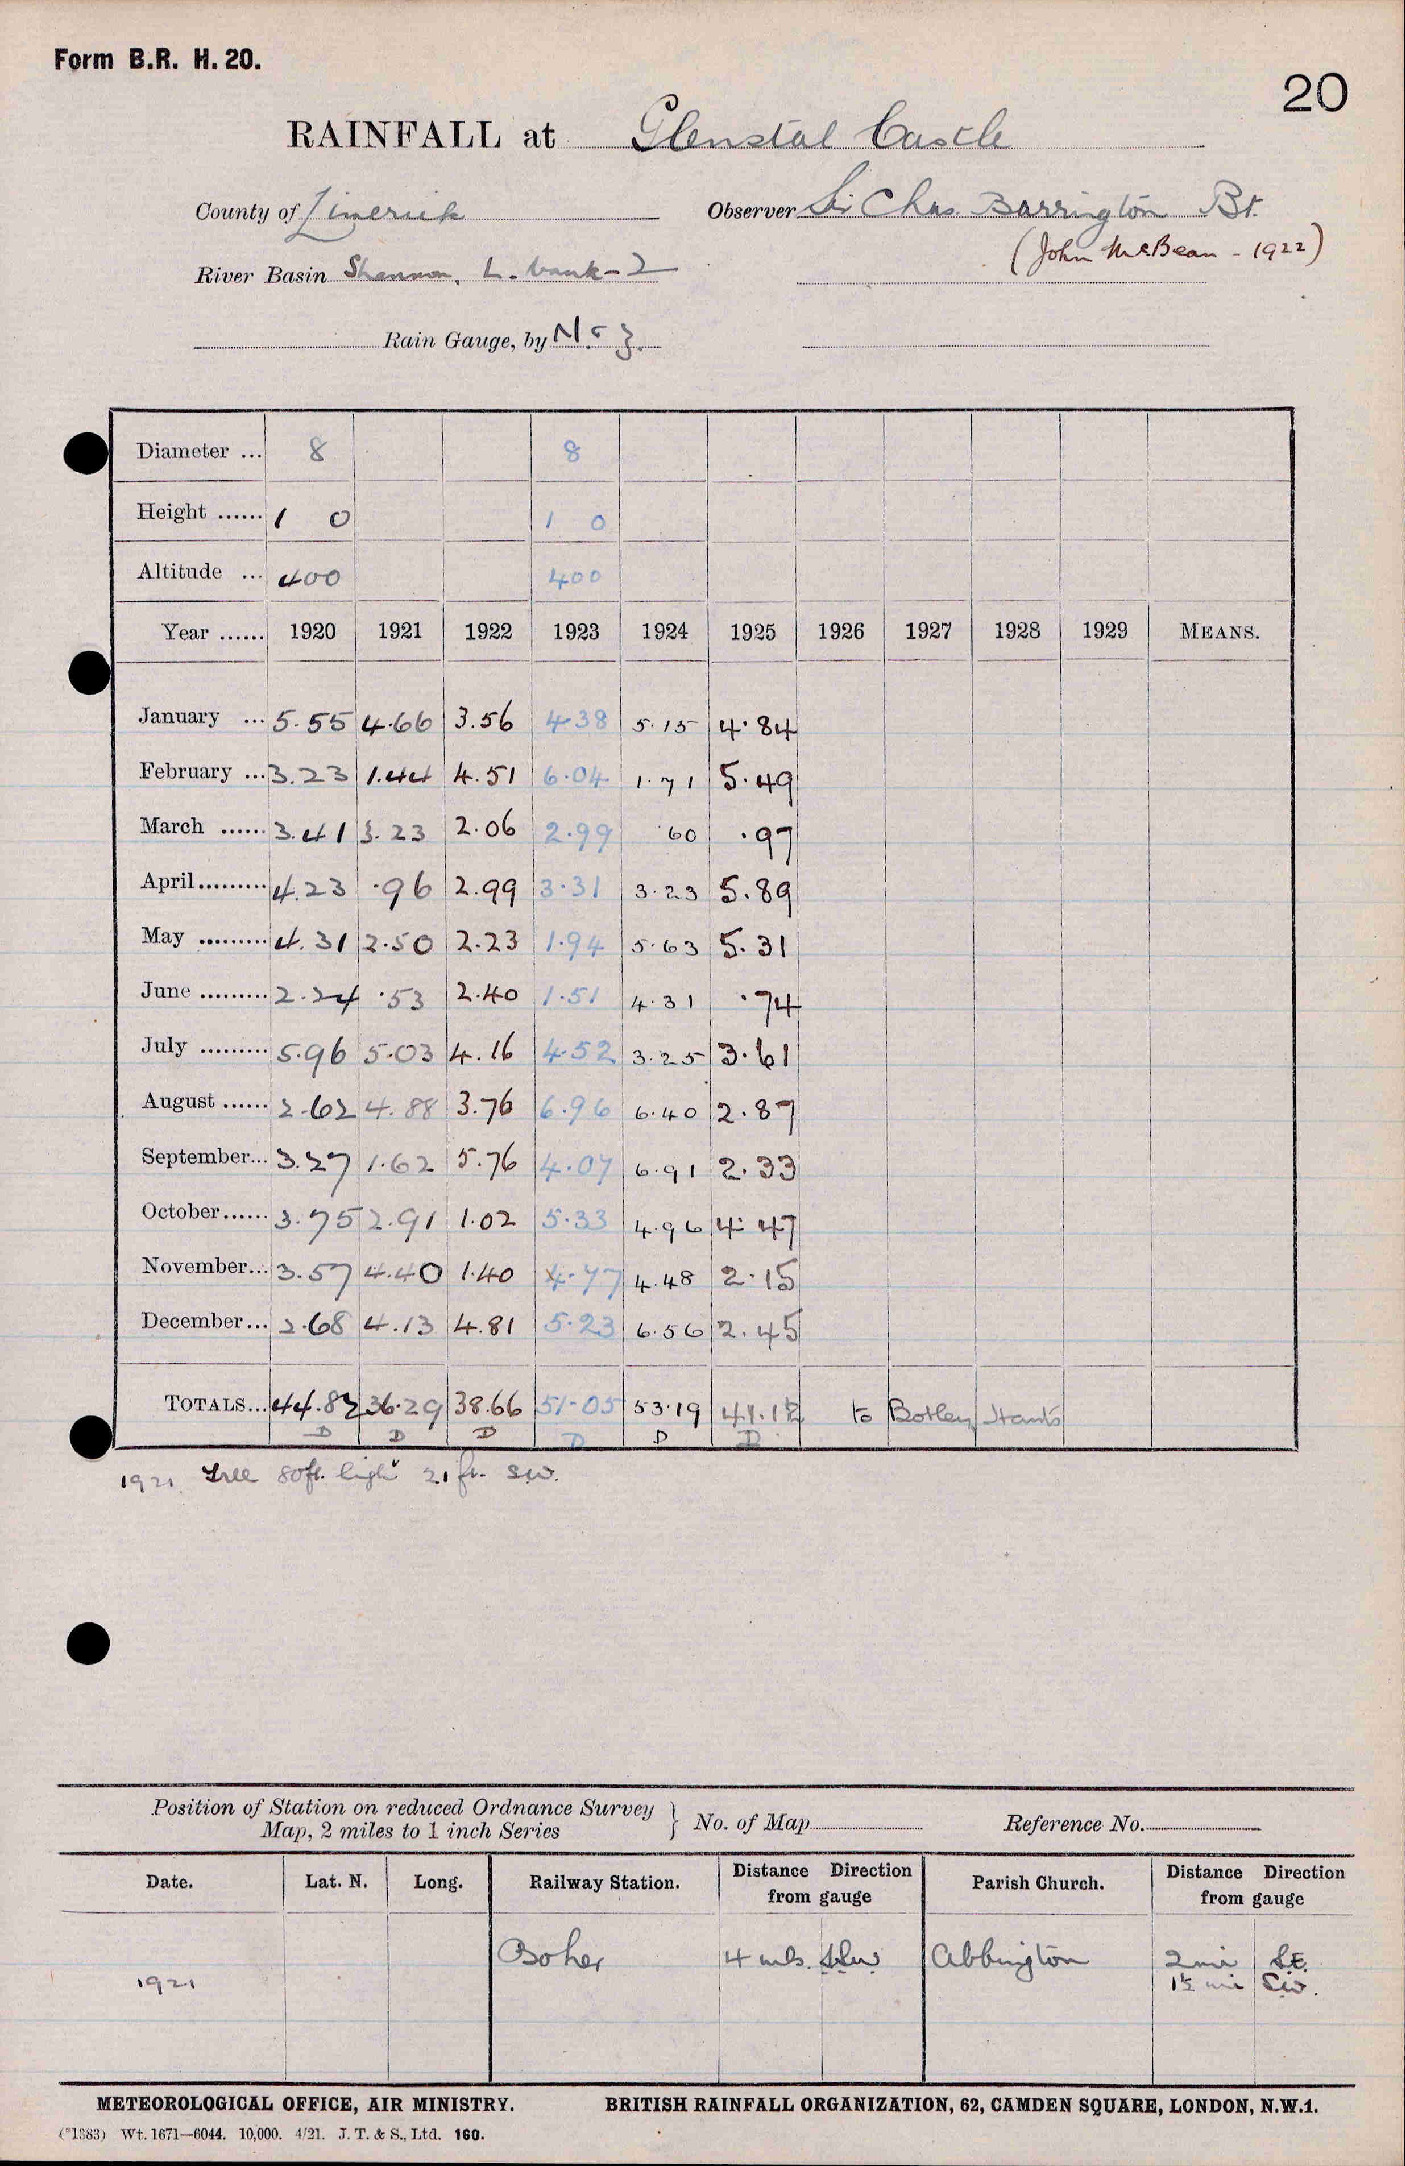 Form B.R. H. 20.
20
RAINFALL at Glenstal Castle
County of Limerick Observer Sir Chas. Barrington Bt.
(John McBean - 1922)
River Basin Shannon, L. bank - 2
Rain Gauge, by N. & Z.
Diameter ... 8 8
Height ...... 1 0 1 0
Altitude ... 400 400
Year ...... 1920 1921 1922 1923 1924 1925 1926 1927 1928 1929 MEANS.
January ... 5.55 4.66 3.56 4.38 5.15 4.84
February ... 3.23 1.44 4.51 6.04 1.71 5.49
March ...... 3.41 3.23 2.06 2.99 .60 .97
April ......... 4.23 .96 2.99 3.31 3.23 5.89
May ......... 4.31 2.50 2.23 1.94 5.63 5.31
June ......... 2.24 .53 2.40 1.51 4.31 .74
July ......... 5.96 5.03 4.16 4.52 3.25 3.61
August ...... 2.62 4.88 3.76 6.96 6.40 2.87
September... 3.27 1.62 5.76 4.07 6.91 2.33
October...... 3.75 2.91 1.02 5.33 4.96 4.47
November... 3.57 4.40 1.40 4.77 4.48 2.15
December... 2.68 4.13 4.81 5.23 6.56 2.45
TOTALS... 44.82 36.29 38.66 51.05 53.19 41.12 to Botley, Hants
D D D D D D
1921 Tree 80ft. high 21 ft. SW.
Position of Station on reduced Ordnance Survey
Map, 2 miles to 1 inch Series } No. of Map Reference No.
Date. Lat. N. Long. Railway Station. Distance Direction from gauge Parish Church. Distance Direction from gauge
Boher 4 mls. SSW Abbington 2 mi S.E.
1921 1½ mi SW.
METEOROLOGICAL OFFICE, AIR MINISTRY. BRITISH RAINFALL ORGANIZATION, 62, CAMDEN SQUARE, LONDON, N.W.1.
(*1383) Wt. 1671—6044. 10,000. 4/21. J. T. & S., Ltd. 160.